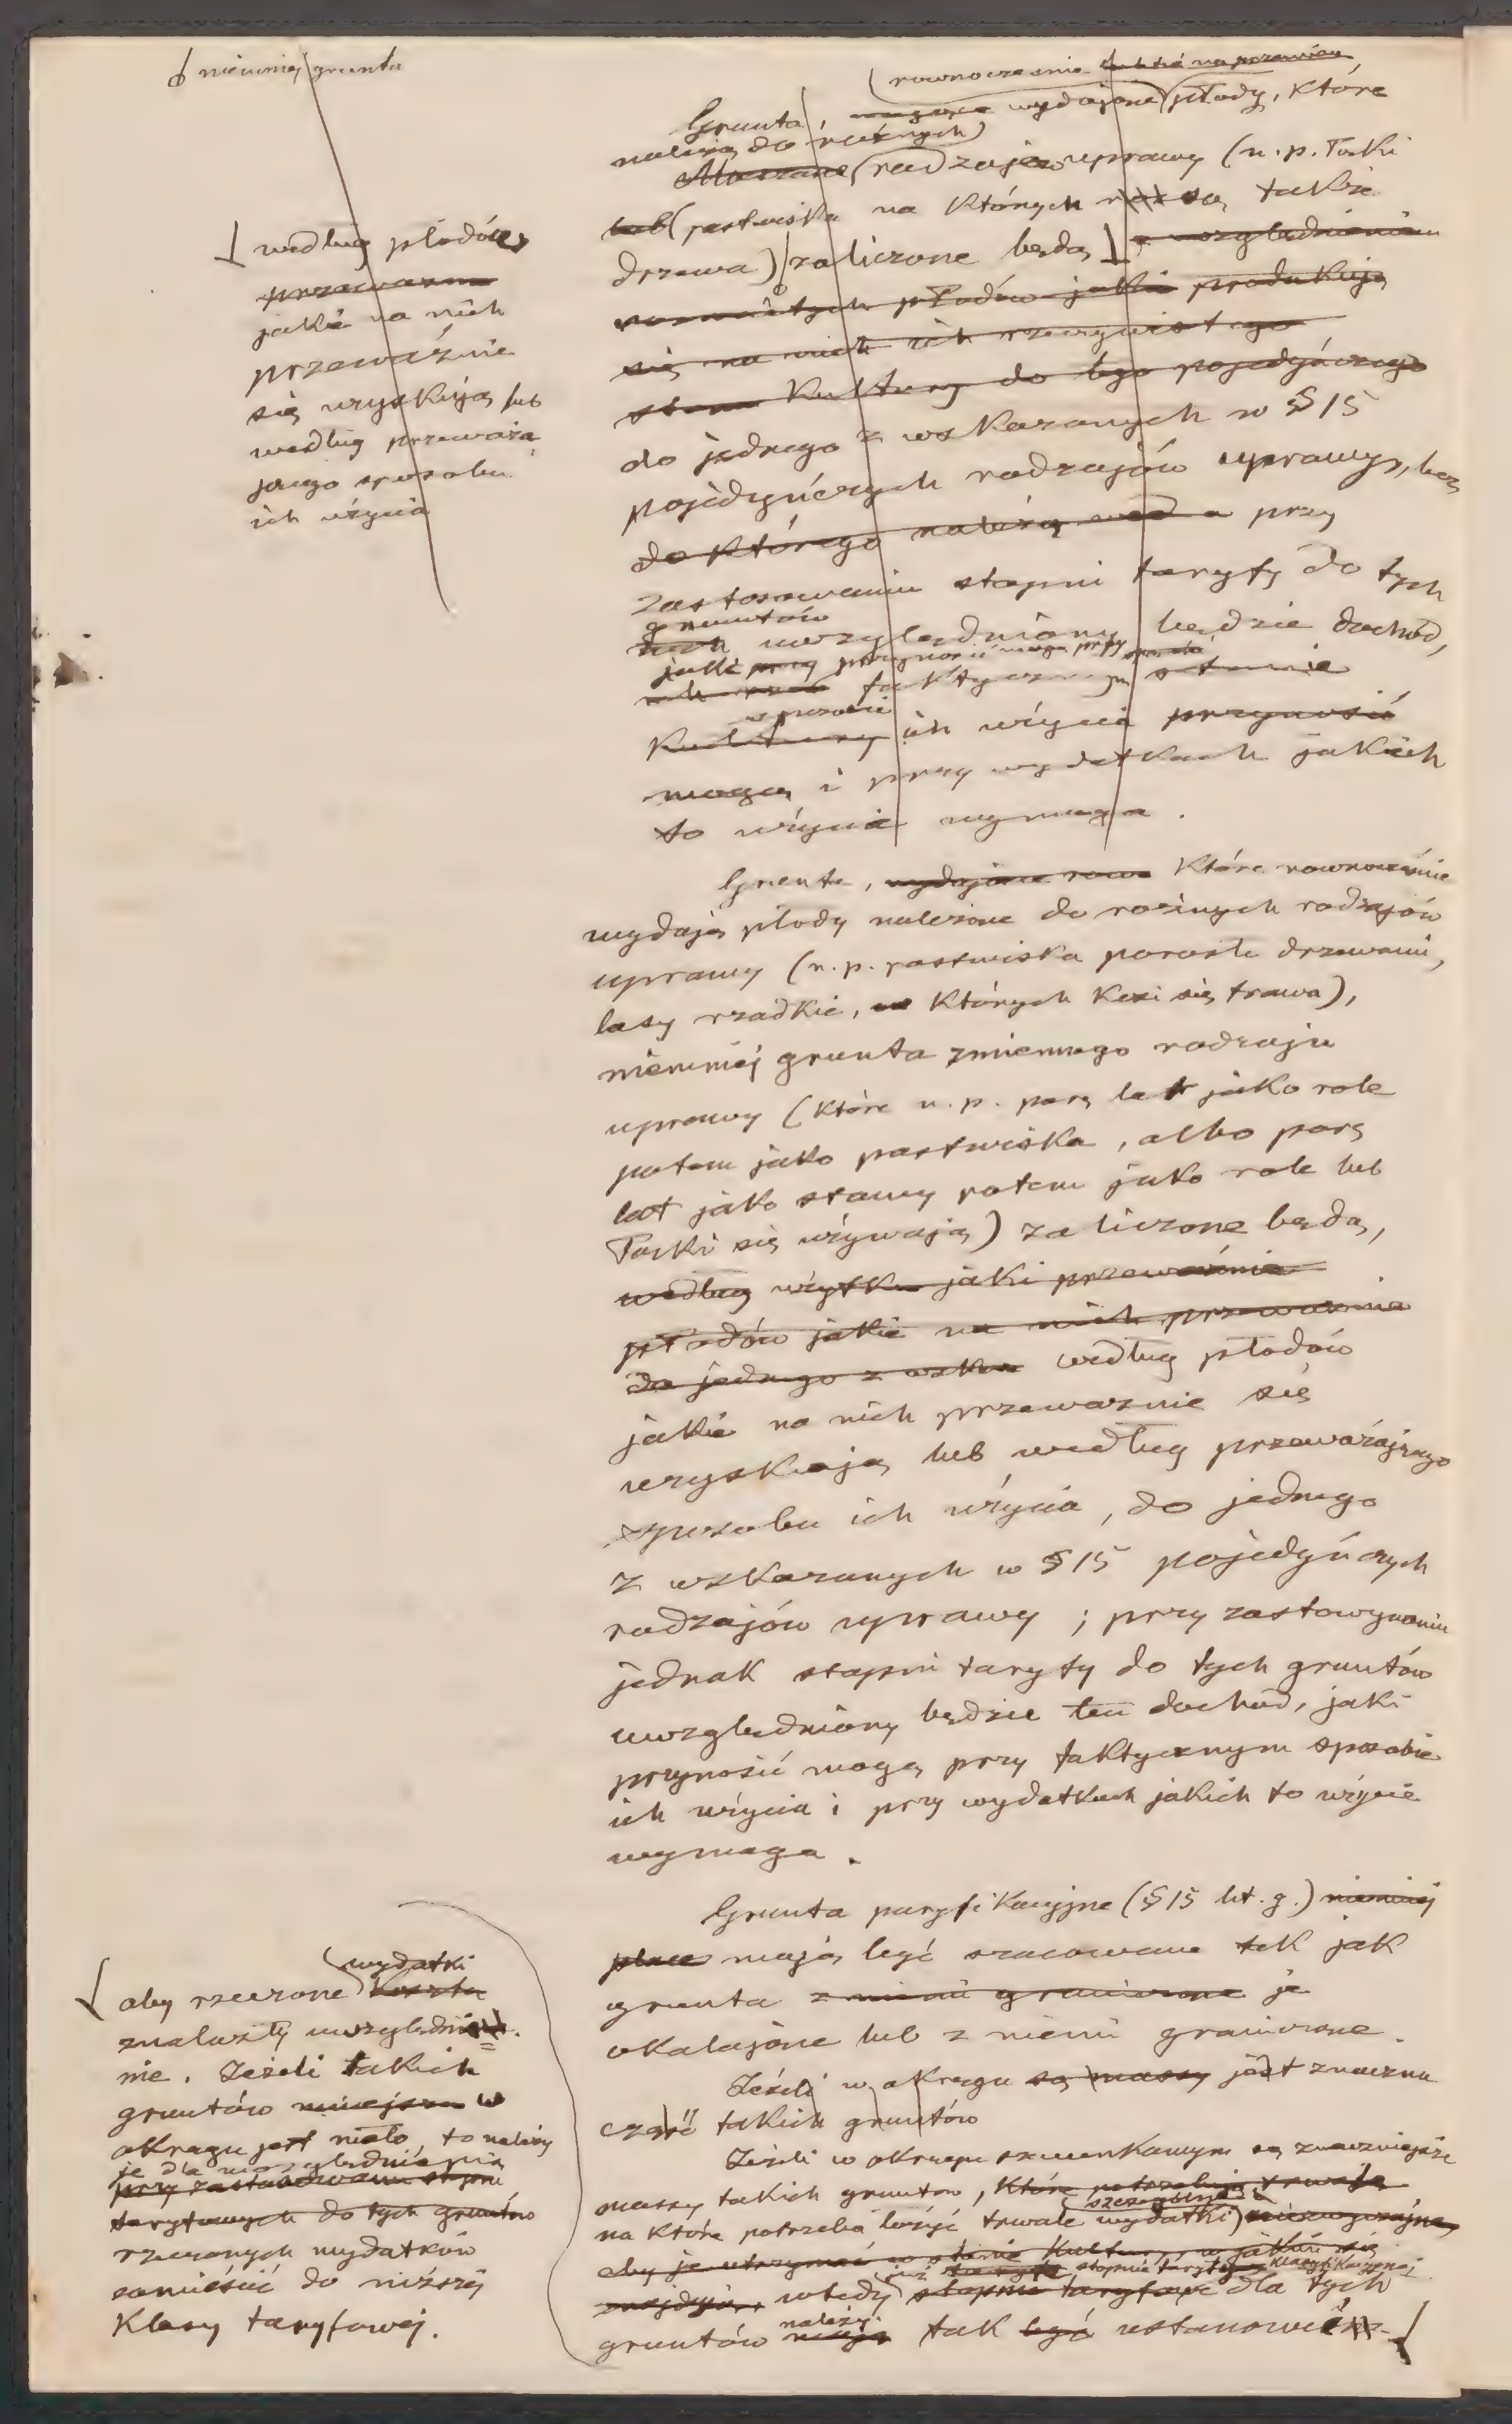 niemniej grunta
równocześnie
Grunta, wydające płody, które
należą do różnych
rodzajów uprawy (n.p. Łąki
lub (pastwiska na których są także
drzewa) zaliczone będą z uwzględnieniem
rozmaitych płodów jakie produkują
się na nich ich rzeczywistego
stanu Kultury do tego pojedyńczego
do jednego z wskazanych w § 15
pojedyńczych rodzajów uprawy, lecz
do którego należą przy
zastosowaniu stopni taryfy do tych
gruntów
uwzględniony będzie dochód,
jaki przy przynosić mogą przy sposobie
faktycznym stanie
sposobie
Kultury ich użycia przynosić
mogą i przy wydatkach jakich
to użycie wymaga.
według płodów
jakie na nich
przeważnie
się uzyskują lub
według przeważa
jącego sposobu
ich użycia
Grunta, wydające które równocześnie
wydają płody należące do rożnych rodzajów
uprawy (n.p. pastwiska porosłe drzewami,
lasy rzadkie, w których kosi się trawa),
niemniej grunta zmiennego rodzaju
uprawy (które n.p. parę lat jako role
potem jako pastwiska, albo parę
lat jako stawy potem jako role lub
Łąki się używają) zaliczone będą,
według użytku jaki przeważnie
płodów jakie na nich przeważnie
do jednego z wska według płodów
jakie na nich przeważnie się
uzyskują lub według przeważającego
sposobu ich użycia, do jednego
z wskazanych w § 15 pojedyńczych
rodzajów uprawy; przy zastosowaniu
jednak stopni taryfy do tych gruntów
uwzględniony będzie ten dochód, jaki
przynosić mogą przy faktycznym sposobie
ich użycia i przy wydatkach jakich to użycie
wymaga.
Grunta paryfikacyjne (§ 15 lit. g.) niemniej
place mają być szacowane tak jak
grunta z niemi graniczone je
okalające lub z niemi graniczące.
Jeżeli w okręgu są massy jest znaczna
część takich gruntów
Jeżeli w okręgu szacunkowym są znaczniejsze
massy takich gruntów, które potrzebują trwałe
szczególne
na które potrzeba łożyć trwałe wydatki
aby je utrzymać w stanie Kultury, w jakim się
już taryfę stopnie taryfy klasyfikacyjnej
znajdują, wtedy stopnie taryfowe dla tych
należy
gruntów mają tak być ustanowić
wydatki
aby rzeczone koszta
znalazły uwzględnie-
nie. Jeżeli takich
gruntów w
okręgu jest mało, to należy
je dla uwzględnienia
przy zastosowaniu stopni
taryfowych do tych gruntów
rzeczonych wydatków
zamieścić do niższej
Klasy taryfowej.